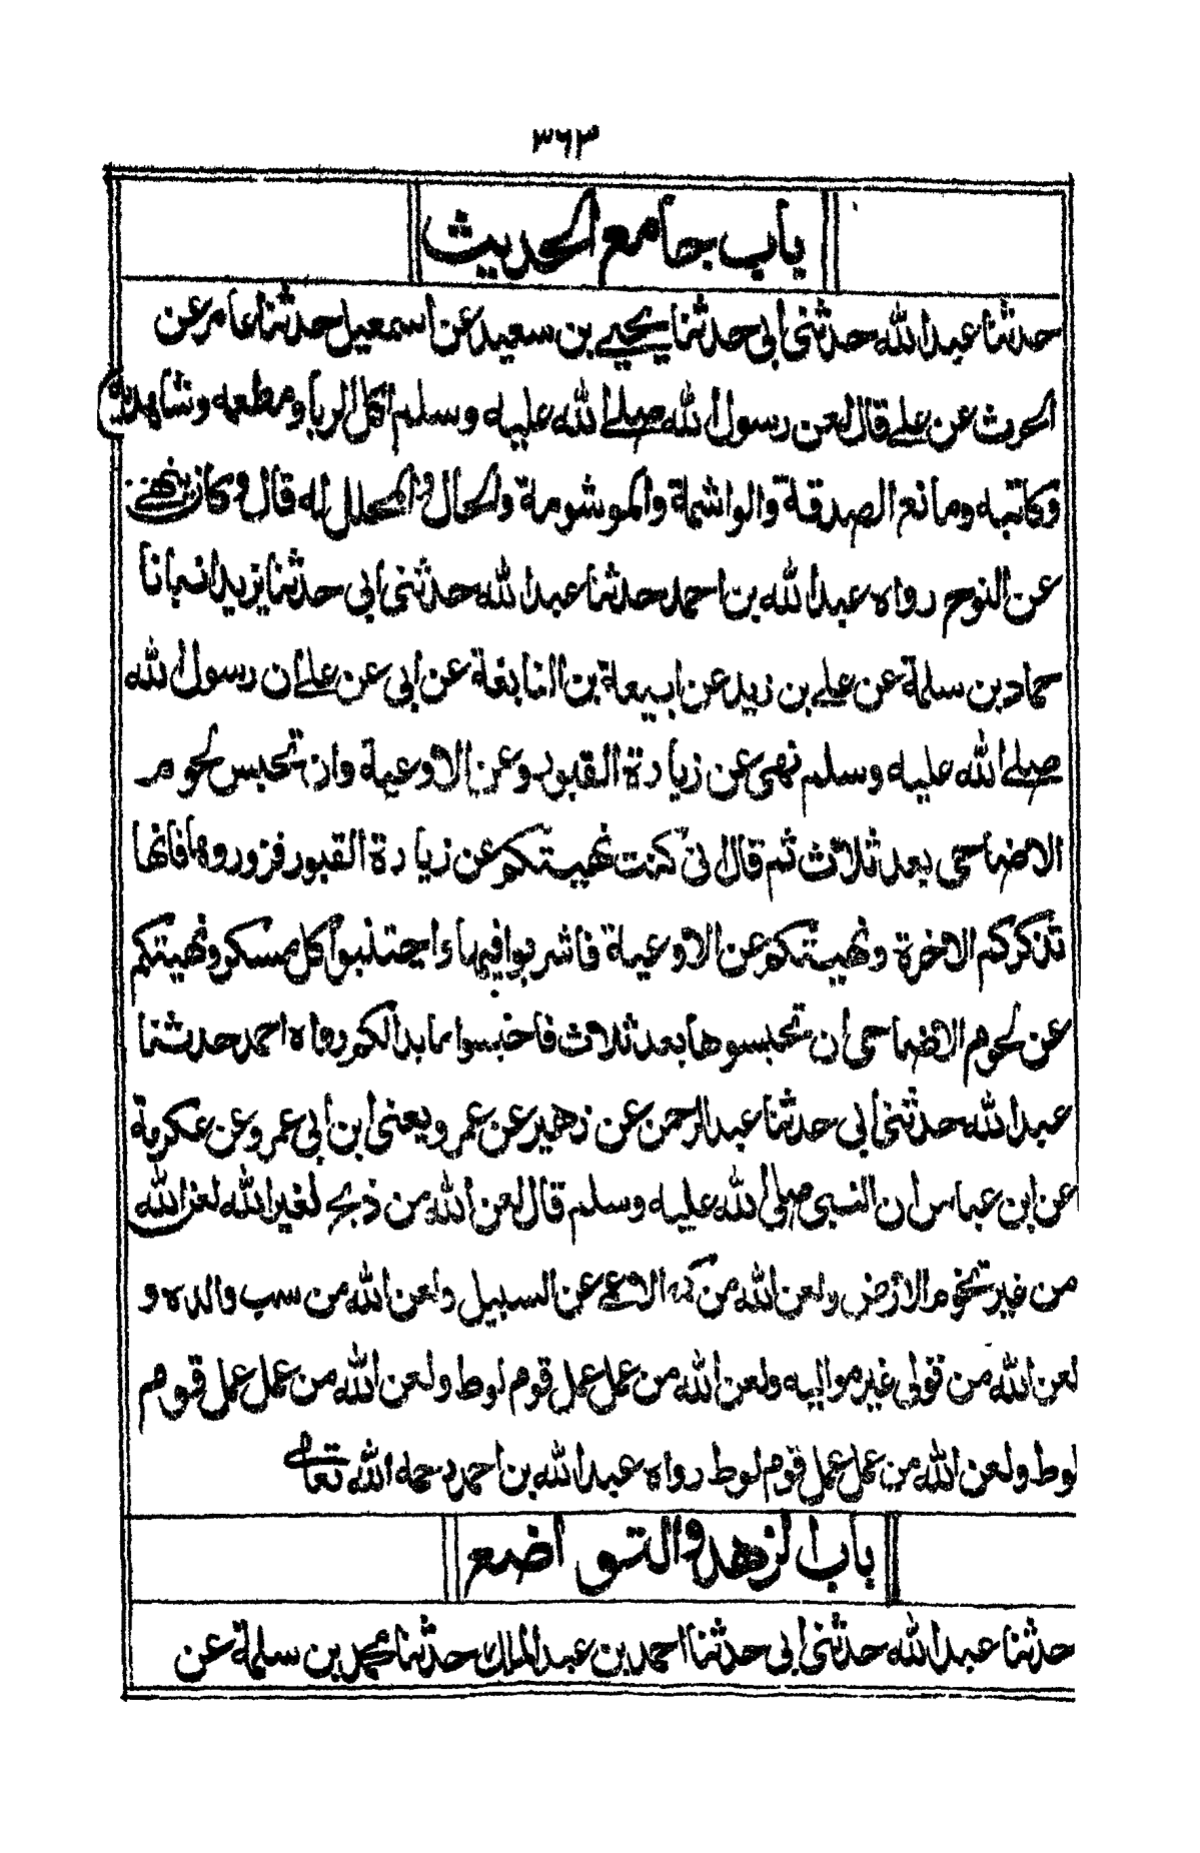 ٣٦٣
باب جامع الحديث
حدثنا عبدالله حدثنى ابى حدثنا يحيے بن سعيد عن اسمعيل حدثنا عامر عن
الحرث عن علے قال لعن رسول الله صلے الله عليه وسلم اكل الربا ومطعمه وشاهديه
وكاتبه ومانع الصدقة والواشمة والموشومة والحال والمحلل له قال وكان ينهے
عن النوح رواه عبدالله بن احمد حدثنا عبدالله حدثنى ابى حدثنا يزيد انبانا
حماد بن سلمة عن علے بن زيد عن ابيعة بن النابغة عن ابى عن علے ان رسول الله
صلے الله عليه وسلم نهى عن زيارة القبور وعن الاوعية وان تحبس لحوم
الاضاحى بعد ثلاث ثم قال انى كنت نهيتكم عن زيارة القبور فزوروها فانها
تذكركم الاخرة ونهيتكم عن الاوعية فاشربوا فيها واجتنبوا كل مسكر ونهيتكم
عن لحوم الاضاحى ان تحبسوها بعد ثلاث فاحبسوا ما بدالكم رواه احمد حدثنا
عبدالله حدثنى ابى حدثنا عبدالرحمن عن زهير عن عمرو يعنى ابن ابى عمرو عن عكرمة
عن ابن عباس ان النبى صلى الله عليه وسلم قال لعن الله من ذبح لغير الله لعن الله
من غير تخوم الارض ولعن الله من كمه الاعمے عن السبيل ولعن الله من سب والده و
لعن الله من تولى غير مواليه ولعن الله من عمل عمل قوم لوط ولعن الله من عمل عمل قوم
لوط ولعن الله من عمل عمل قوم لوط رواه عبدالله بن احمد رحمه الله تعالى
باب الزهد والتواضع
حدثنا عبدالله حدثنى ابى حدثنا احمد بن عبدالملك حدثنا محمد بن سلمة عن